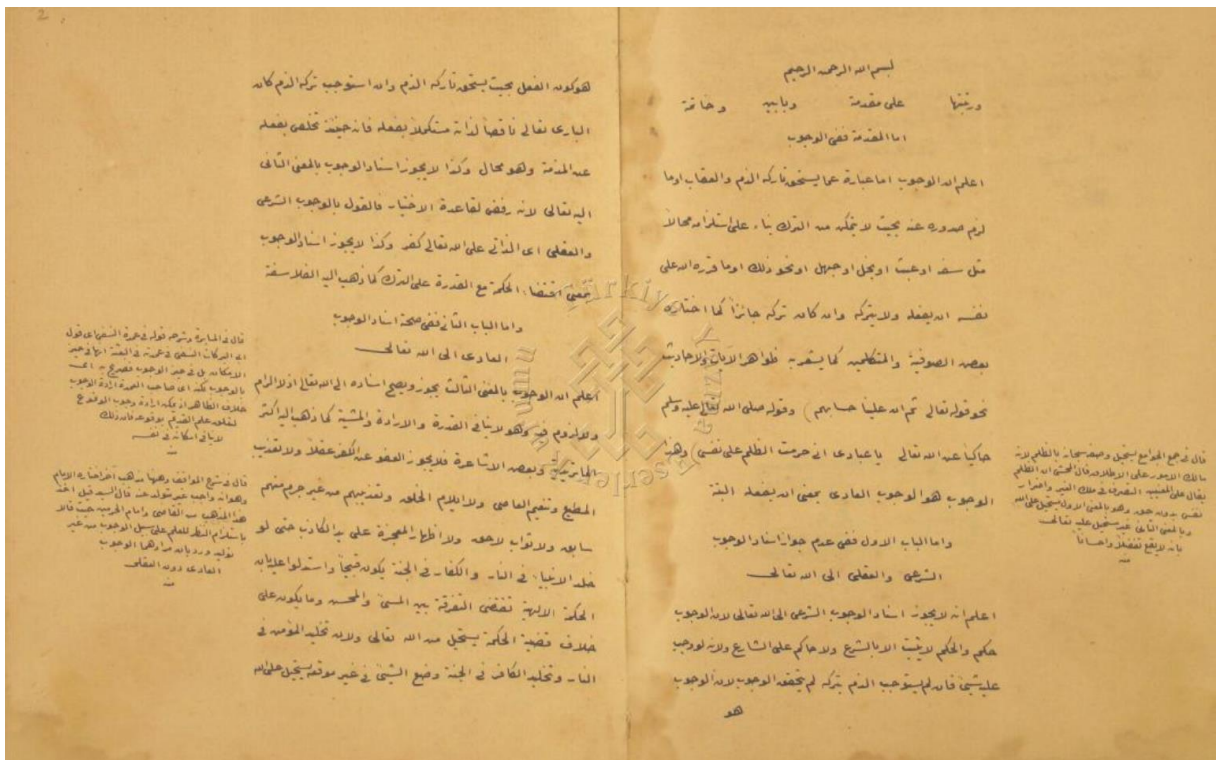 بسم الله الرحمن الرحيم
ورتبتها على مقدمة وبابين وخاتمة
اما المقدمة ففى الوجوب
اعلم ان الوجوب اما عبارة عما يستحق تاركه الذم والعقاب او ما
لزم صدوره عنه بحيث لا يتمكن من الترك بناء على استلزامه محالاً
مثل سفه او عبث او بخل او جهل او نحو ذلك او ما قدره الله على
نفسه ان يفعله ولا يتركه وان كان تركه جائزاً كما اختاره
بعض الصوفية والمتكلمين كما يشعر به ظواهر الايات والاحاديث
نحو قوله تعالى ثم ان علينا حسابهم) وقوله صلى الله تعالى عليه وسلم
حاكيا عن الله تعالى يا عبادى انى حرمت الظلم على نفسى وهذا
الوجوب هو الوجوب العادى بمعنى ان يفعله البتة
واما الباب الاول ففى عدم جواز اسناد الوجوب
الشرعى والعقلى الى الله تعالى
اعلم انه لا يجوز اسناد الوجوب الشرعى الى الله تعالى لان الوجوب
حكم والحكم لا يثبت الا بالشرع ولا حاكم على الشارع ولانه لو وجب
عليه شيئ فان لم يستوجب الذم بتركه لم يتحقق الوجوب لان الوجوب
هو
قال فى جمع الجوامع يستحيل وصفه سبحانه بالظلم لانه
مالك الامور على الاطلاق قال المحشى ان الظلم
يقال على المعنيين التصرف فى ملك الغير واضرار
نفس بدون حق وهو بالمعنى الاول يستحيل على الله
وبالمعنى الثانى غير مستحيل عليه تعالى
بانه لا يقع تفضلاً واحساناً
منه
2
هو كون الفعل بحيث يستحق تاركه الذم وان استوجب تركه الذم كان
البارى تعالى ناقصاً لذاته مستكملاً بفعله فانه حينئذ تخلص بفعله
عن المذمة وهو محال وكذا لا يجوز اسناد الوجوب بالمعنى الثانى
اليه تعالى لانه رفض لقاعدة الاختيار فالقول بالوجوب الشرعى
والعقلى اى الذاتى على الله تعالى كفر وكذا لا يجوز اسناد الوجوب
بمعنى اقتضاء الحكمة مع القدرة على الترك كما ذهب اليه الفلاسفة
واما الباب الثانى ففى صحة اسناد الوجوب
العادى الى الله تعالى
اعلم ان الوجوب بالمعنى الثالث يجوز ويصح اسناده الى الله تعالى اذ لا الزام
ولا لزوم فيه وهو لا ينافى القدرة والارادة والمشية كما ذهب اليه اكثر
الماتريدية وبعض الاشاعرة فلا يجوز العفو عن الكفر عقلا ولا تعذيب
المطيع وتنعيم العاصى ولا ايلام الخلق وتعذيبهم من غير جرم منهم
سابق ولا ثواب لاحق ولا اظهار المعجزة على يد الكاذب حتى لو
خلد الانبياء فى النار والكفار فى الجنة يكون قبيحاً واستدلوا عليه بان
الحكمة الالهية تقتضى التفرقة بين المسئ والمحسن وما يكون على
خلاف قضية الحكمة يستحيل من الله تعالى ولان تخليد المؤمن فى
النار وتخليد الكافر فى الجنة وضع الشيئ فى غير موقعه يستحيل على الله
قال فى المسايرة وشرحه قوله فى عمدة النسفى اى قول
ابى البركات النسفى فى عمدته
الامكان بل فى حيز الوجوب
بالوجوب لكن اى صاحب العمدة اراد الوجوب
خلاف الظاهر اذ يمكن ارادة وجوب الوقوع
لتعلق علم القديم بوقوعه فان ذلك
لا ينافى امكانه فى نفسه
منه
قال فى شرح المواقف وههنا مذهب آخر اختاره الامام
وهو انه واجب غير متولد عنه قال السيد قيل اخذ
هذا المذهب من القاضى وامام الحرمين حيث قالا
باستلزام النظر للعلم على سبيل الوجوب من غير
توليد ورد بان مرادهما الوجوب
العادى دون العقلى
منه
Türkiye Yazma Eserler Kurumu